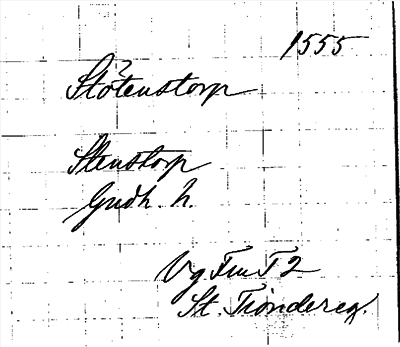 1555
Stötenstorp
Stenstorp
Gudh. h.
Vg Fru T 2
St. Tiondereg.